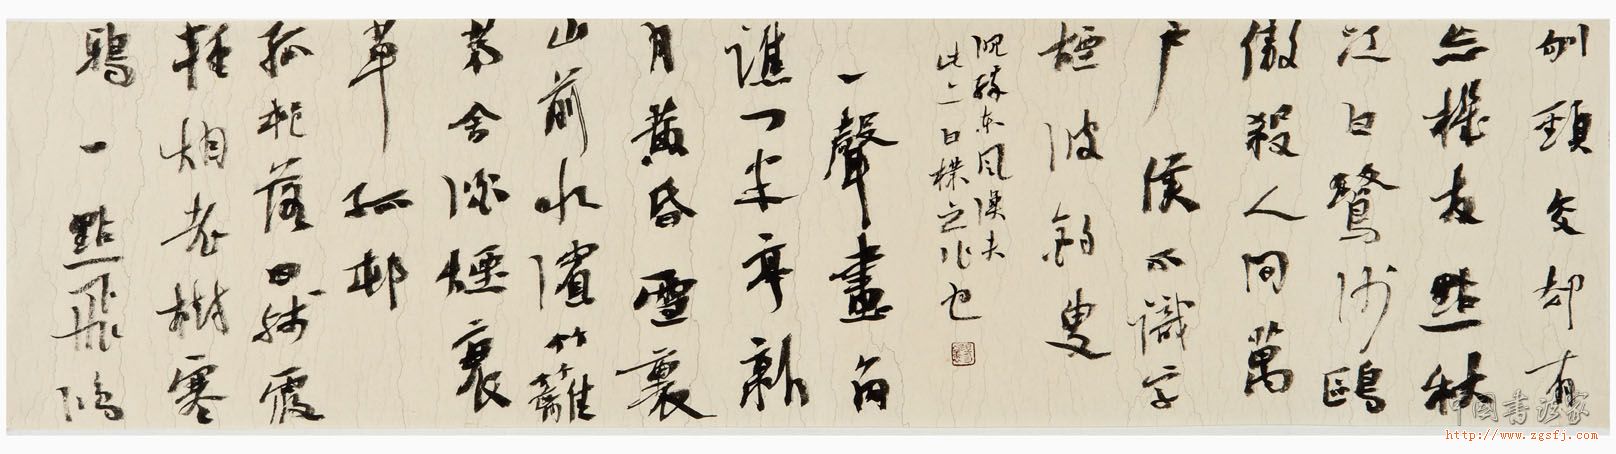 刎頸交却有
忘機友點秋
江白鷺沙鷗
傲殺人間萬
戶侯不識字
煙波釣叟
沉醉東風漁夫
此二白樸之作也
一聲畫角
譙門半亭新
月黃昏雪裏
山前水濱竹籬
茅舍淡煙衰
草孤邨
孤邨落日殘霞
輕烟老樹寒
鴉一點飛鴻
中国书法家
http://www.zgsfj.com